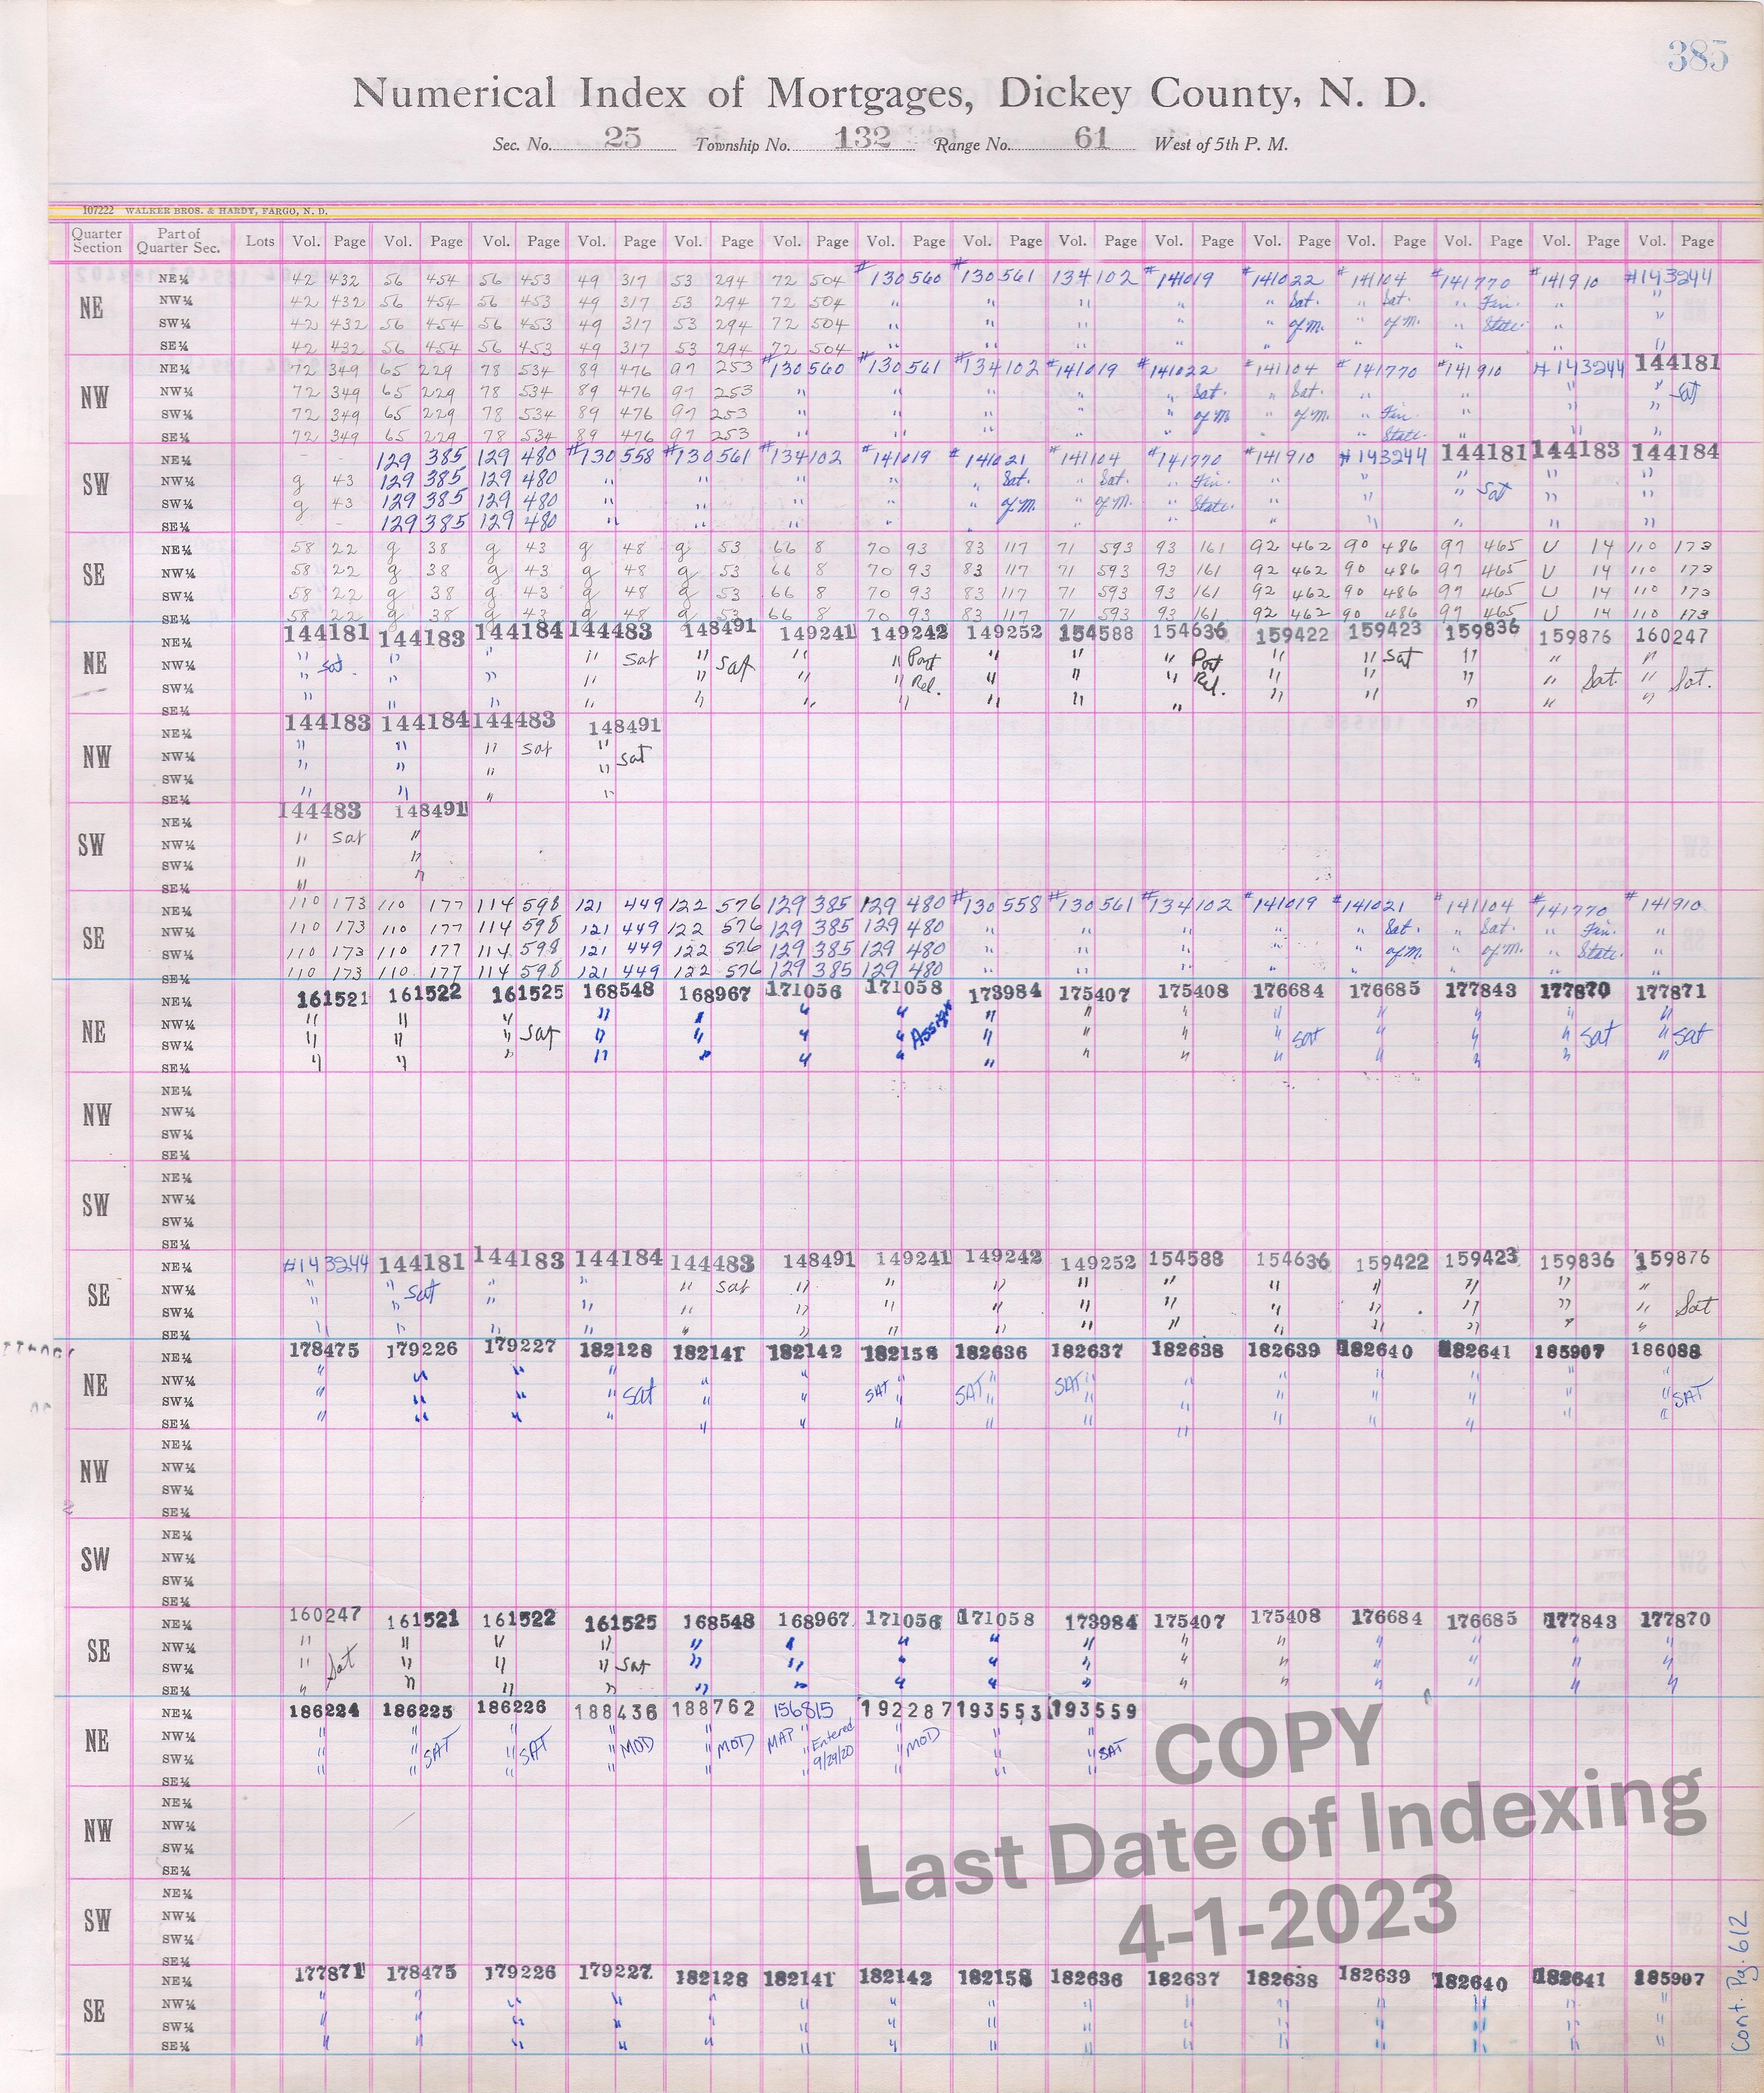 385
Numerical Index of Mortgages, Dickey County, N. D.
Sec. No. 25 Township No. 132 Range No. 61 West of 5th P. M.
107222 WALKER BROS. & HARDY, FARGO, N. D.
Quarter Section Part of Quarter Sec. Lots Vol. Page Vol. Page Vol. Page Vol. Page Vol. Page Vol. Page Vol. Page Vol. Page Vol. Page Vol. Page Vol. Page Vol. Page Vol. Page Vol. Page Vol. Page
NE NE¼ 42 432 56 454 56 453 49 317 53 294 72 504 #130560 #130561 134102 #141019 #141022 #141104 #141770 #141910 #143244
NW¼ 42 432 56 454 56 453 49 317 53 294 72 504 " " " " " Sat. " Sat. " Fin. " "
SW¼ 42 432 56 454 56 453 49 317 53 294 72 504 " " " " " of M. " of M. " State. " "
SE¼ 42 432 56 454 56 453 49 317 53 294 72 504 " " " " " " " " "
NW NE¼ 72 349 65 229 78 534 89 476 97 253 #130560 #130561 #134102 #141019 #141022 #141104 #141770 #141910 #143244 144181
NW¼ 72 349 65 229 78 534 89 476 97 253 " " " " " Sat. " Sat. " " " " Sat
SW¼ 72 349 65 229 78 534 89 476 97 253 " " " " " of M. " of M. " Fin. " " "
SE¼ 72 349 65 229 78 534 89 476 97 253 " " " " " " " State. " " "
SW NE¼ - - 129 385 129 480 #130558 #130561 #134102 #141019 #141021 #141104 #141770 #141910 #143244 144181 144183 144184
NW¼ g 43 129 385 129 480 " " " " " Sat. " Sat. " Fin. " " " " "
SW¼ g 43 129 385 129 480 " " " " " of M. " of M. " State. " " " Sat " "
SE¼ - - 129 385 129 480 " " " " " " " " " " " "
SE NE¼ 58 22 g 38 g 43 g 48 g 53 66 8 70 93 83 117 71 593 93 161 92 462 90 486 97 465 U 14 110 173
NW¼ 58 22 g 38 g 43 g 48 g 53 66 8 70 93 83 117 71 593 93 161 92 462 90 486 97 465 U 14 110 173
SW¼ 58 22 g 38 g 43 g 48 g 53 66 8 70 93 83 117 71 593 93 161 92 462 90 486 97 465 U 14 110 173
SE¼ 58 22 g 38 g 43 g 48 g 53 66 8 70 93 83 117 71 593 93 161 92 462 90 486 97 465 U 14 110 173
NE NE¼ 144181 144183 144184 144483 148491 149241 149242 149252 154588 154636 159422 159423 159836 159876 160247
NW¼ " Sat " " " Sat " Sat " " Part " " " Part " " Sat " " "
SW¼ " " " " " " " Rel. " " " Rel. " " " " Sat. " Sat.
SE¼ " " " " " " " " " " " " " " "
NW NE¼ 144183 144184 144483 148491
NW¼ " " " Sat "
SW¼ " " " " Sat
SE¼ " " " "
SW NE¼ 144483 148491
NW¼ " Sat "
SW¼ " "
SE¼ " "
SE NE¼ 110 173 110 177 114 598 121 449 122 576 129 385 129 480 #130558 #130561 #134102 #141019 #141021 #141104 #141770 #141910
NW¼ 110 173 110 177 114 598 121 449 122 576 129 385 129 480 " " " " " Sat. " Sat. " Fin. "
SW¼ 110 173 110 177 114 598 121 449 122 576 129 385 129 480 " " " " " of M. " of M. " State. "
SE¼ 110 173 110 177 114 598 121 449 122 576 129 385 129 480 " " " " " " " "
NE NE¼ 161521 161522 161525 168548 168967 171056 171058 173984 175407 175408 176684 176685 177843 177870 177871
NW¼ " " " " " " " Assign " " " " " " " "
SW¼ " " " Sat " " " " " " " " Sat " " " Sat " Sat
SE¼ " " " " " " " " " " " " " " "
NW NE¼
NW¼
SW¼
SE¼
SW NE¼
NW¼
SW¼
SE¼
SE NE¼ #143244 144181 144183 144184 144483 148491 149241 149242 149252 154588 154636 159422 159423 159836 159876
NW¼ " " Sat " " " Sat " " " " " " " " " "
SW¼ " " " " " " " " " " " " " " " Sat
SE¼ " " " " " " " " " " " " " " "
NE NE¼ 178475 179226 179227 182128 182141 182142 182158 182636 182637 182638 182639 182640 182641 185907 186088
NW¼ " " " " " " SAT " SAT " SAT " " " " " " "
SW¼ " " " " Sat " " " " " " " " " " " SAT
SE¼ " " " " " " " " " " " " " " "
NW NE¼
NW¼
SW¼
SE¼
SW NE¼
NW¼
SW¼
SE¼
SE NE¼ 160247 161521 161522 161525 168548 168967 171056 171058 173984 175407 175408 176684 176685 177843 177870
NW¼ " " " " " " " " " " " " " " "
SW¼ " Sat " " " Sat " " " " " " " " " " "
SE¼ " " " " " " " " " " " " " " "
NE NE¼ 186224 186225 186226 188436 188762 156815 192287 193553 193559
NW¼ " " " " " MAP " Entered " " "
SW¼ " " SAT " SAT " MOD " MOD " 9/29/20 " MOD " " SAT
SE¼ " " " " " " " " "
NW NE¼
NW¼
SW¼
SE¼
SW NE¼
NW¼
SW¼
SE¼
SE NE¼ 177871 178475 179226 179227 182128 182141 182142 182158 182636 182637 182638 182639 182640 182641 185907
NW¼ " " " " " " " " " " " " " " "
SW¼ " " " " " " " " " " " " " " "
SE¼ " " " " " " " " " " " " " " "
COPY
Last Date of Indexing
4-1-2023
Cont. Pg. 612